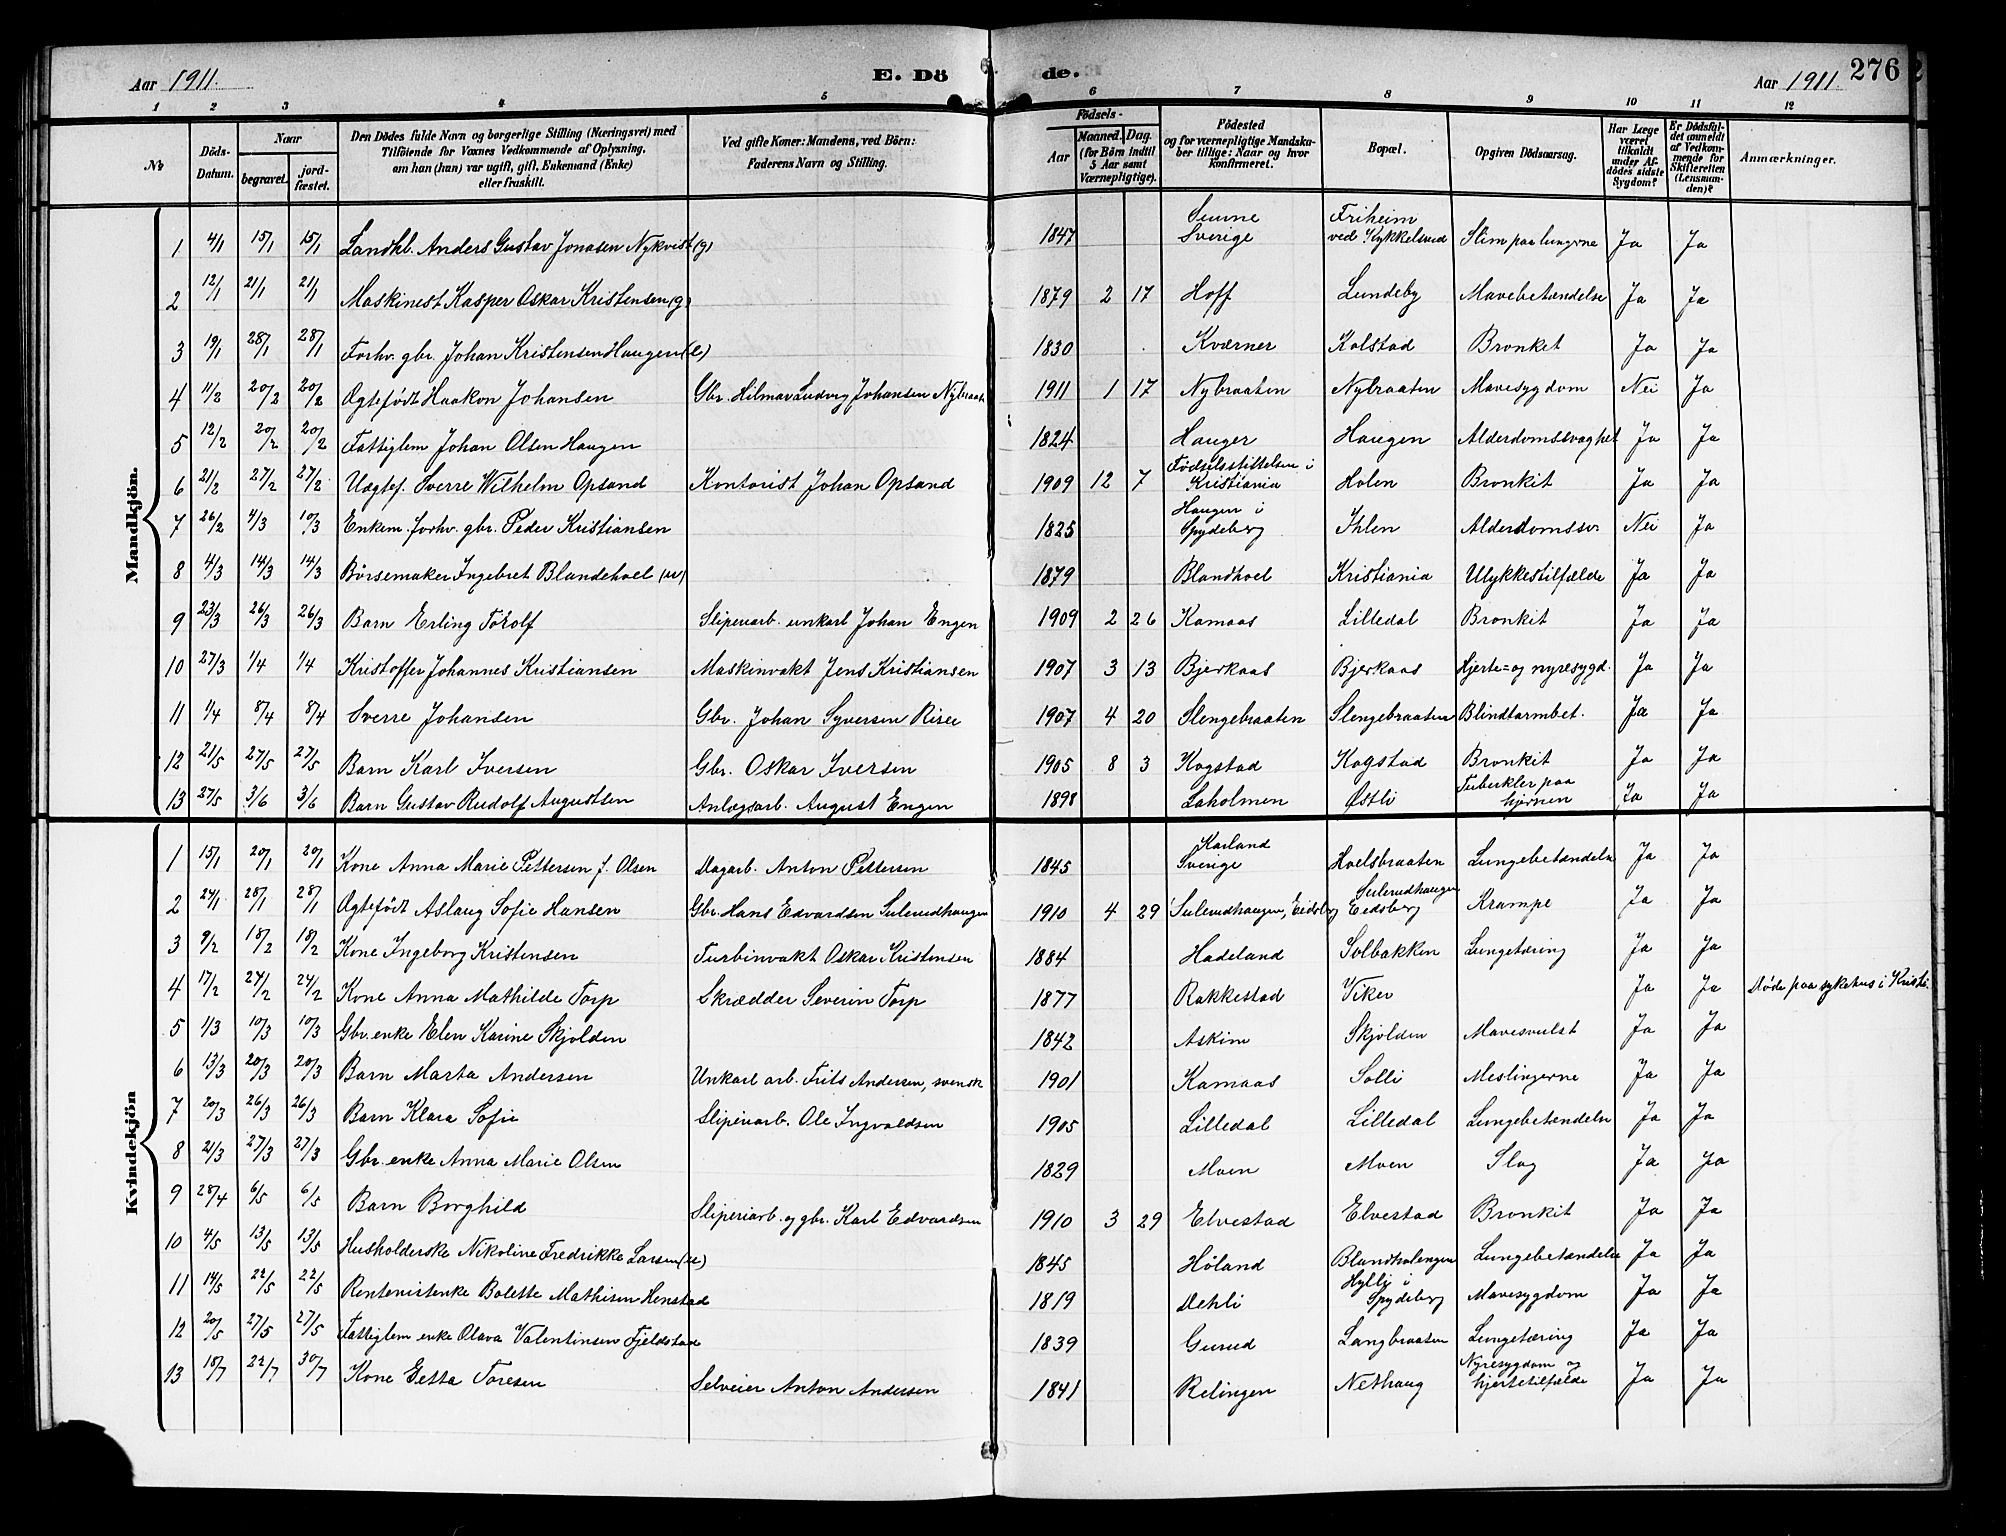 Aar 1911. E. Dö de. Aar 1911. 276
1 2 3 4 5 6 7 8 9 10 11 12
No
Döds-Datum.
Naar
begravet.
jord-fæstet.
Den Dödes fulde Navn og borgerlige Stilling (Næringsvei) med
Tilföiende for Voxnes Vedkommende af Oplysning,
om han (hun) var ugift, gift, Enkemand (Enke)
eller fraskilt.
Ved gifte Koner: Mandens, ved Börn:
Faderens Navn og Stilling.
Födsels-
Aar
Maaned. Dag.
(for Börn indtil
5 Aar samt
Værnepligtige).
Födested
og for værnepligtige Mandska-
ber tillige: Naar og hvor
konfirmeret.
Bopæl.
Opgiven Dödsaarsag.
Har Læge
været
tilkaldt
under Af-
dödes sidste
Sygdom?
Er Dödsfal-
det anmeldt
af Vedkom-
mende for
Skifteretten
(Lensman-
den)?
Anmærkninger.
Mandkjön.
1 4/1 15/1 15/1 Landhb. Anders Gustav Jonasen Nykvist (g) 1847 Sunne Sverige Friheim ved Kykkelsrud Slim paa lungerne Ja Ja
2 12/1 21/1 21/1 Maskinest Kasper Oskar Kristensen (g) 1879 2 17 Hoff Lundeby Mavebetændelse Ja Ja
3 19/1 28/1 28/1 Forhv. gbr. Johan Kristensen Haugen (e) 1830 Kværner Kolstad Bronket Ja Ja
4 11/2 20/2 20/2 Ægtefødt Haakon Johansen Gbr. Hilmar Ludvig Johansen Nybraat. 1911 1 17 Nybraaten Nybraaten Mavesygdom Nei Ja
5 12/2 20/2 20/2 Fattiglem Johan Olsen Haugen 1824 Hauger Haugen Alderdomssvaghet Ja Ja
6 21/2 27/2 27/2 Uægtef. Sverre Wilhelm Opsand Kontorist Johan Opsand 1909 12 7 Fødselsstiftelsen i Kristiania Holen Bronkit Ja Ja
7 26/2 4/3 10/3 Enkem. forhv. gbr. Peder Kristiansen 1825 Haugen i Spydeberg Ihlen Alderdomssv. Nei Ja
8 4/3 14/3 14/3 Børsemaker Ingebret Blandehoel (u) 1879 Blandhoel Kristiania Ulykkestilfælde Ja Ja
9 23/3 26/3 26/3 Barn Erling Torolf Sliperiarb. unkarl Johan Engen 1909 2 26 Kamaas Lilledal Bronkit Ja Ja
10 27/3 1/4 1/4 Kristoffer Johannes Kristiansen Maskinvakt Jens Kristiansen 1907 3 13 Bjerkaas Bjerkaas Hjerte= og nyresygd. Ja Ja
11 1/4 8/4 8/4 Sverre Johansen Gbr. Johan Syversen Risee 1907 4 20 Slengebraaten Slengebraaten Blindtarmbet. Ja Ja
12 21/5 27/5 27/5 Barn Karl Iversen Gbr. Oskar Iversen 1905 8 3 Kogstad Kogstad Bronkit Ja Ja
13 27/5 3/6 3/6 Barn Gustav Rudolf Augustsen Anlægsarb. August Engen 1898 Laholmen Østli Tuberkler paa hjernen Ja Ja
Kvindekjön
1 15/1 20/1 20/1 Kone Anna Marie Pettersen f. Olsen Dagarb. Anton Pettersen 1845 Karland Sverige Hoelsbraaten Lungebetændelse Ja Ja
2 24/1 28/1 28/1 Ægtefødt Aslaug Sofie Hansen Gbr. Hans Edvardsen Sulerudhaugen 1910 4 29 Sulerudhaugen, Eidsberg Sulerudhaugen Eidsberg Krampe Ja Ja
3 9/2 18/2 18/2 Kone Ingeborg Kristensen Turbinvakt Oskar Kristensen 1884 Hadeland Solbakken Lungetæring Ja Ja
4 17/2 24/2 24/2 Kone Anna Mathilde Torp Skrædder Severin Torp 1877 Rakkestad Viker Ja Ja Døde paa sykehus i Kristi.
5 1/3 10/3 10/3 Gbr. enke Elen Karine Skjolden 1842 Askim Skjolden Mavesvulst Ja Ja
6 13/3 20/3 20/3 Barn Marta Andersen Unkarl arb. Frits Andersen, svensk 1901 Kamaas Solli Meslingerne Ja Ja
7 20/3 26/3 26/3 Barn Klara Sofie Sliperiarb. Ole Ingvaldsen 1905 Lilledal Lilledal Lungebetændelse Ja Ja
8 21/3 27/3 27/3 Gbr. enke Anna Marie Olsen 1829 Moen Moen Slag Ja Ja
9 28/4 6/5 6/5 Barn Borghild Sliperiarb. og gbr. Karl Edvardsen 1910 3 29 Elvestad Elvestad Bronkit Ja Ja
10 4/5 13/5 13/5 Husholderske Nikoline Fredrikke Larsen (u) 1845 Høland Blandholengen Lungebetændelse Ja Ja
11 14/5 22/5 22/5 Rentenistenke Bolette Mathisen Henstad 1819 Dehli Hylli i Spydeberg Mavesygdom Ja Ja
12 20/5 27/5 27/5 Fattiglem enke Olava Valentinsen Fjeldstad 1839 Gurud Langbraaten Lungetæring Ja Ja
13 18/7 22/7 30/7 Kone Getta Toresen Selveier Anton Andersen 1841 Relingen Nethaug Nyresygdom og hjertetilfælde Ja Ja